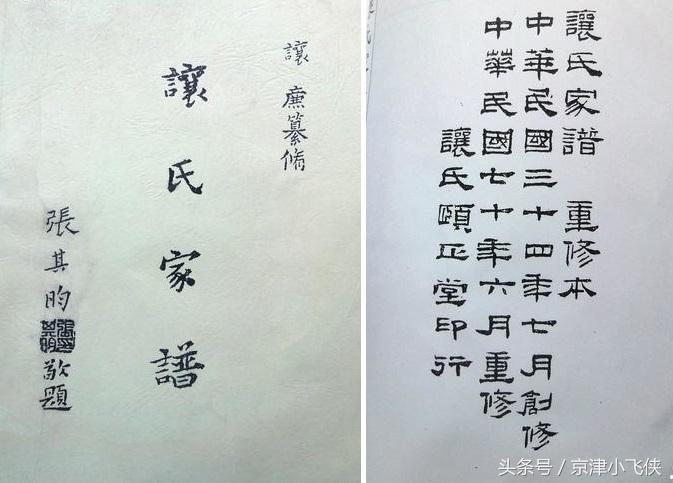 讓 廉纂脩
讓氏家譜
張其昀敬題
讓氏家譜 重修本
中華民國三十四年七月創修
中華民國七十年六月重修
讓氏頤正堂印行
头条号／京津小飞侠